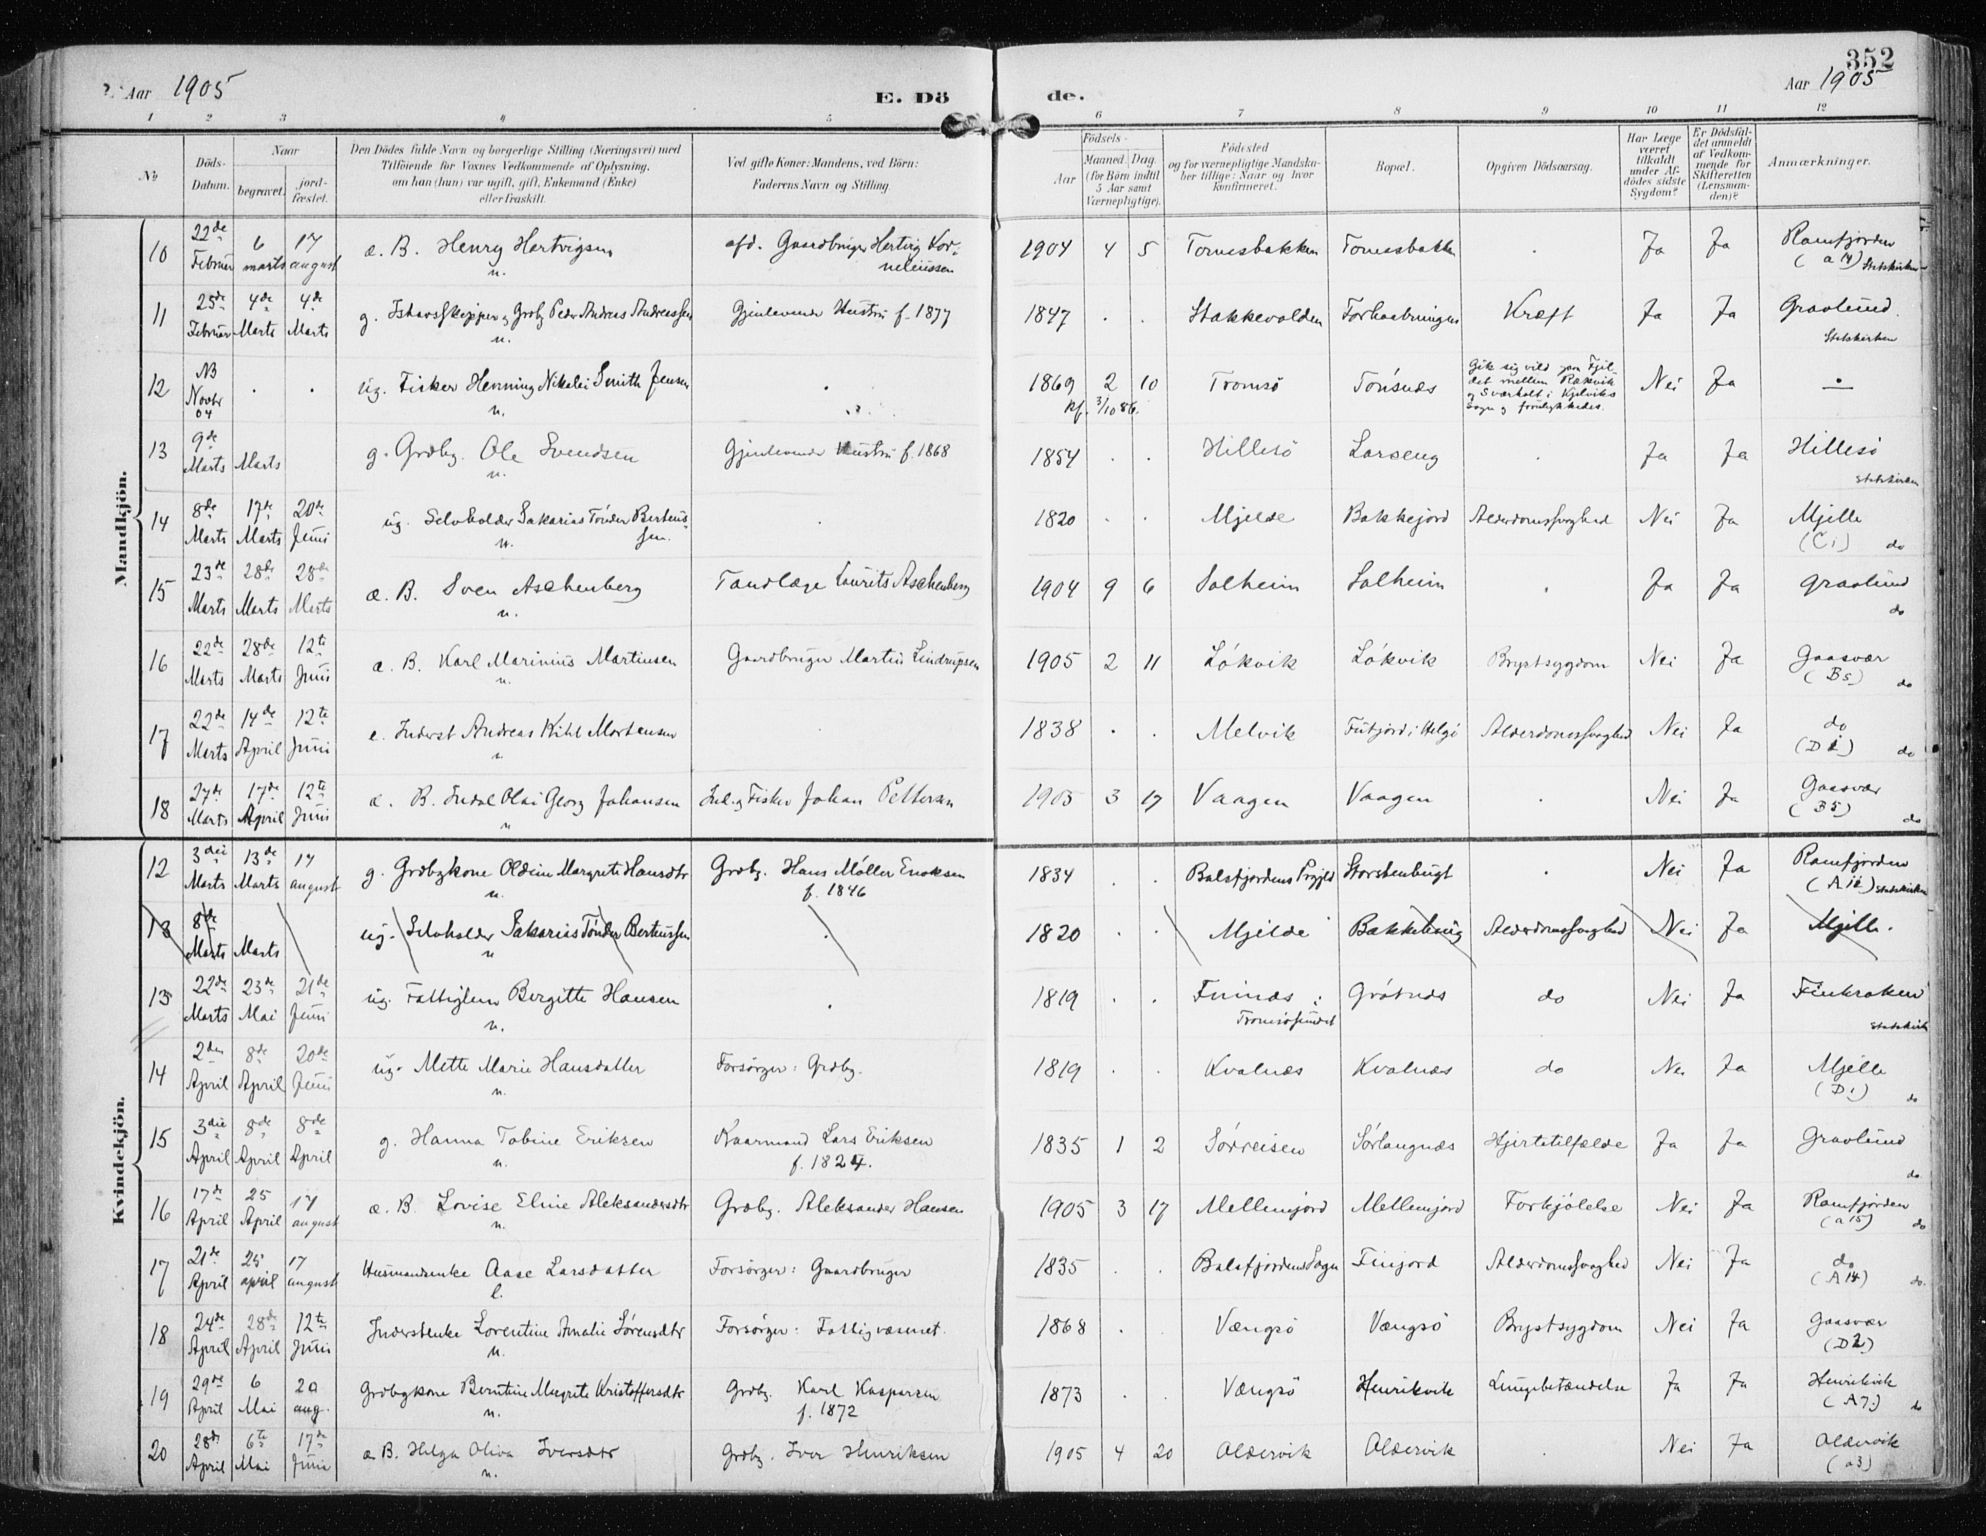 Aar 1905
E. Dö
de.
352
Aar 1905
1 2 3 4 5 6 7 8 9 10 11 12
No
Döds-Datum.
Naar
begravet.
jord-fæstet.
Den Dödes fulde Navn og borgerlige Stilling (Næringsvei) med
Tilföiende for Voxnes Vedkommende af Oplysning,
om han (hun) var ugift, gift, Enkemand (Enke)
eller fraskilt.
Ved gifte Koner: Mandens, ved Börn:
Faderens Navn og Stilling.
Födsels-
Aar
Maaned. Dag.
(for Börn indtil
5 Aar samt
Værnepligtige).
Födested
og for værnepligtige Mandska-
ber tillige: Naar og hvor
konfirmeret.
Bopæl.
Opgiven Dödsaarsag.
Har Læge
været
tilkaldt
under Af-
dödes sidste
Sygdom?
Er Dödsfal-
det anmeldt
af Vedkom-
mende for
Skifteretten
(Lensman-
den)?
Anmærkninger.
Mandkjön.
10 22de Februar 6 marts 17 august æ. B. Henry Hartvigsen n. afd. Gaardbruger Hertvig Korneliussen 1904 4 5 Tomasbakken Tomasbakken . Ja Ja Ramfjorden (a 14) Statskirken
11 25de Februar 4de Marts 4de Marts g. Ishavsskipper og Grdbg Peder Andreas Andreassen n. Gjenlevende Hustru f. 1877 1847 . . Stakkevolden Forhaabningen Kræft Ja Ja Gravlund. Statskirken
12 NB Novbr 04 . . ug. Fisker Henning Nikolai Smith Jensen n. . 1869 2 10 kf. 3/10 86. Tromsö Tönsnæs Gik sig vild paa Fjeldet mellem Rækvik og Sværholt i Kjelviks Sogn og forulykkedes. Nei Ja .
13 9de Marts Marts g. Grdbg. Ole Svendsen n. Gjenlevende Hustru f. 1868 1854 . . Hillesö Larseng . Ja Ja Hillesö Statskirken
14 8de Marts 17de Marts 20de Juni ug. Selvholder Sakarias Tönder Berteussen. n. . 1820 . . Mjelde Bakkejord Alderdomssvaghed Nei Ja Mjelle (C1) do
15 23de Marts 28de Marts 28de Marts æ. B. Sven Aschenberg n. Tandlæge Laurits Aschenberg 1904 9 6 Solheim Solheim . Ja Ja Gravlund do
16 22de Marts 28de Marts 12te Juni æ. B. Karl Marinius Martinsen n. Gaardbruger Martin Lindrupsen 1905 2 11 Lökvik Lökvik Brystsygdom Nei Ja Gaasvær (B5) do
17 22de Marts 14de April 12te Juni e. Inderst Andreas Kihl Mortensen n . 1838 . . Melvik Futfjord i Helgö Alderdomssvaghed Nei Ja do (D1) do
18 27de Marts 17de April 12te Juni æ. B. Endal Olai Georg Johansen n Inl. og Fisker Johan Pettersen 1905 3 17 Vaagen Vaagen . Nei Ja Gaasvær (B5) do
Kvindekjön.
12 3die Marts 13de Marts 17 august g. Grdbgkone Oldine Margrete Hansdtr n. Grdbg. Hans Möller Enoksen f. 1846 1834 . . Balsfjordens Prgjld Storstenbugt . Nei Ja Ramfjorden (A12) Statskirken
13 8de Marts Marts ug. Selvholder Sakarias Tönder Berteussen n . 1820 . . Mjelde Bakkeleuig Alderdomssvaghed Nei Ja Mjelle.
13 22de Marts 23de Mai 21de Juni ug. Fattiglem Bergitte Hansen n. . 1819 . . Finnæs i Tromsösundet Grötnæs do Nei Ja Finkroken Statskirk
14 2den April 8de April 20de Juni ug. Mette Marie Hansdatter n. Forsörger: Grdbg. 1819 . . Kvalnæs Kvalnæs do Nei Ja Mjelle (D1) do
15 3die April 8de April 8de April g. Hanna Tobine Eriksen n. Kaarmand Lars Eriksen f. 1824. 1835 1 2 Sörreisen Sörlangnæs Hjertetilfælde Ja Ja Gravlund do
16 17de April 25 April 17 august æ. B. Lovise Eline Aleksandersdtr n. Grdbg. Aleksander Hansen 1905 3 17 Mellemjord Mellemjord Forkjölelse Nei Ja Ramfjorden (a15) do
17 21de April 25 april 17 august Husmandsenke Aase Larsdatter l. Forsörger: Gaardbruger 1835 . . Balsfjordens Sogn Finjord Alderdomssvaghed Nei Ja do (A14) do.
18 24de April 28de April 12te Juni Inderstenke Lorentine Amalie Sörensdtr n. Forsörger: Fattigvæsenet. 1868 . Vængsö Vængsö Brystsygdom Nei Ja Gaasvær (D2)
19 29de April 6 Mai 20 aug. Grdbgkone Berntine Margrete Kristoffersdtr n. Grdbg. Karl Kaspersen f. 1872 1873 . . Vængsö Henrikvik Lungebetændelse Ja Ja Henrikvik (A7.) do
20 28de April 6te Mai 17de Juni æ B. Helga Oliva Iversdtr n. Grdbg. Iver Henriksen 1905 4 20 Oldervik Oldervik . Nei Ja Oldervik (a3)